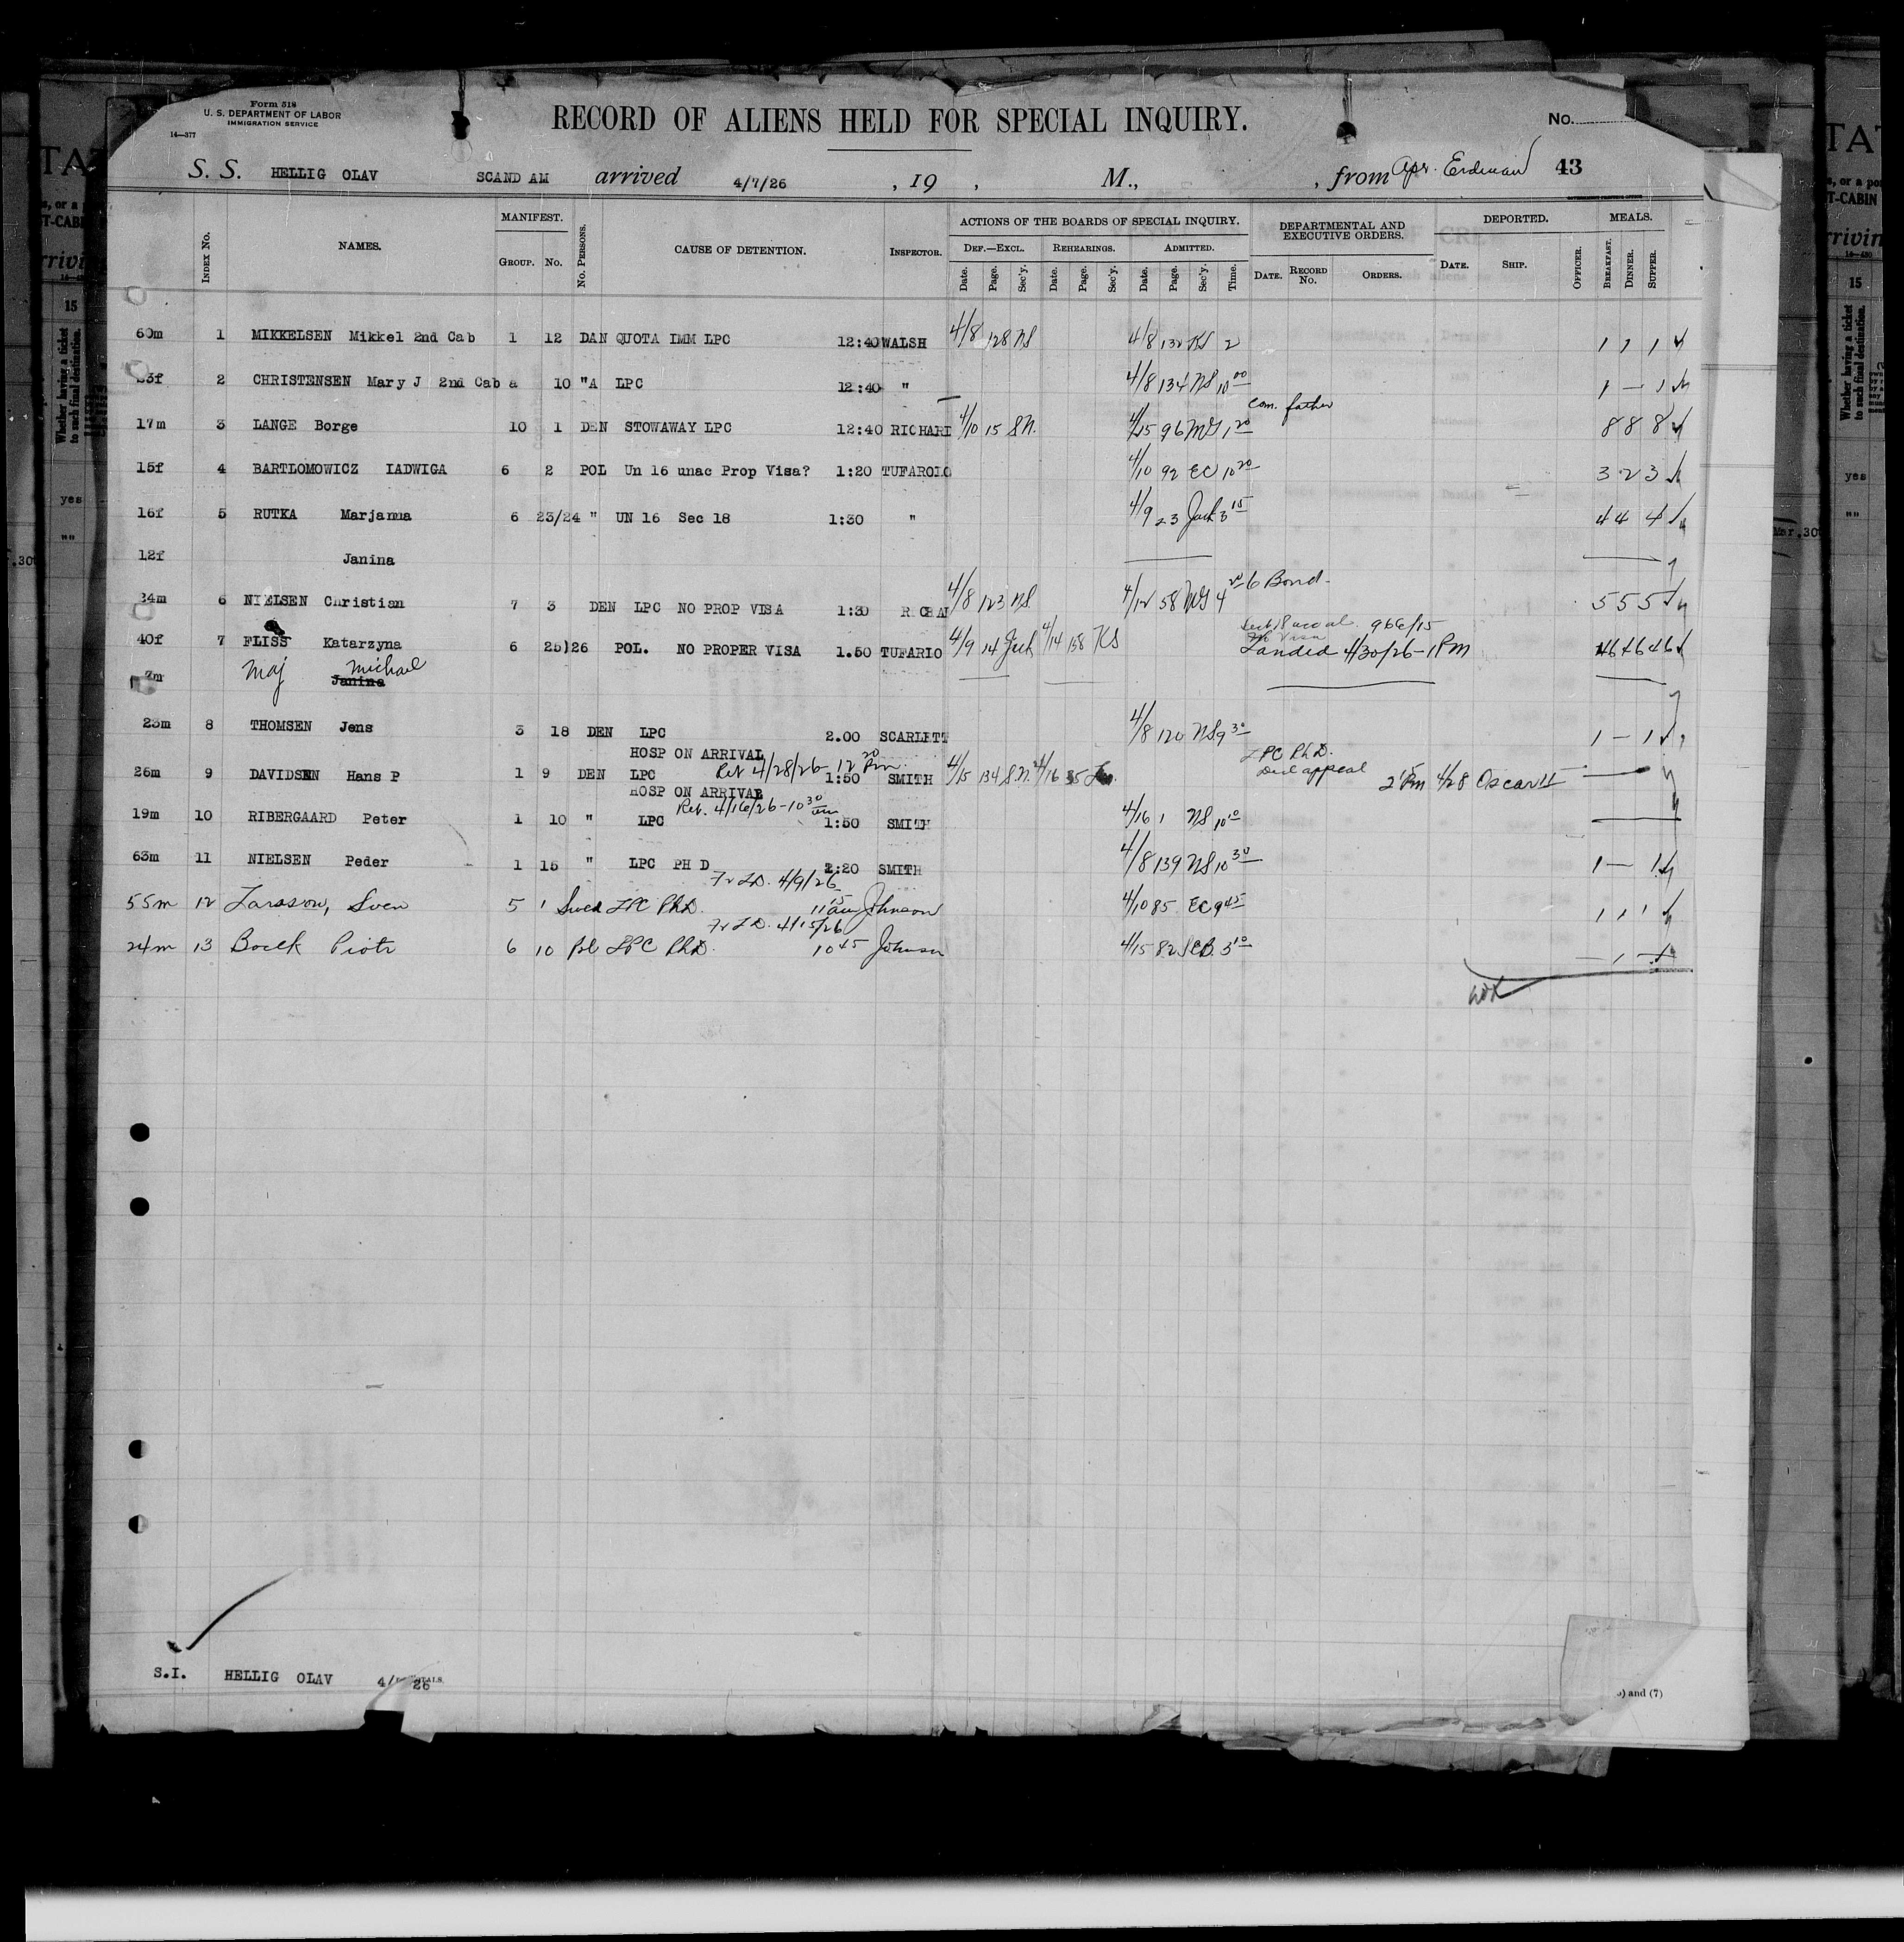 Form 518
U. S. DEPARTMENT OF LABOR
IMMIGRATION SERVICE
14—377
RECORD OF ALIENS HELD FOR SPECIAL INQUIRY.
No.
S. S. HELLIG OLAV SCAND AM arrived 4/7/26 , 19 , M., , from Apr. Erdman 43
INDEX No. NAMES. MANIFEST. GROUP. No. No. PERSONS. CAUSE OF DETENTION. INSPECTOR. ACTIONS OF THE BOARDS OF SPECIAL INQUIRY. DEF.—EXCL. Date. Page. Sec'y. REHEARINGS. Date. Page. Sec'y. ADMITTED. Date. Page. Sec'y. Time. DEPARTMENTAL AND EXECUTIVE ORDERS. DATE. RECORD No. ORDERS. DEPORTED. DATE. SHIP. OFFICER. MEALS. BREAKFAST. DINNER. SUPPER.
60m 1 MIKKELSEN Mikkel 2nd Cab 1 12 DAN QUOTA IMM LPC 12:40 WALSH 4/8 128 NS 4/8 132 NS 2 1 1 1
2 CHRISTENSEN Mary J 2nd Cab a 10 "A LPC 12:40 " 4/8 134 NS 10 00 1 — 1
com. father
17m 3 LANGE Borge 10 1 DEN STOWAWAY LPC 12:40 RICHARI 4/10 15 S.N. 4/15 96 MG 1 20 8 8 8
15f 4 BARTLOMOWICZ IADWIGA 6 2 POL Un 16 unac Prop Visa? 1:20 TUFAROLO 4/10 92 EC 10 20 3 2 3
16f 5 RUTKA Marjanna 6 23/24 " UN 16 Sec 18 1:30 " 4/9 23 Jack 3 15 4 4 4
12f Janina
34m 6 NIELSEN Christian 7 3 DEN LPC NO PROP VISA 1:30 4/8 123 NS 4/12 58 MG 4 20 6 Bond. 5 5 5
966/15
40f 7 FLISS Katarzyna 6 25)26 POL. NO PROPER VISA 1.50 TUFARIO 4/9 14 Jack 4/14 158 KS Landed 4/30/26 - 1 Pm 46 46 46
7m Maj Michael Janina
23m 8 THOMSEN Jens 3 18 DEN LPC 2.00 SCARLETT 4/8 120 NS 9 30 1 — 1
HOSP ON ARRIVAL LPC Ph.D.
Rel 4/28/26 - 12 20 Pm. appeal
26m 9 DAVIDSEN Hans P 1 9 DEN LPC 1:50 SMITH 4/15 134 S.N. 4/16 2 15 Pm 4/28 Oscar II
HOSP ON ARRIVAL
Rel. 4/16/26 - 10 30 am
19m 10 RIBERGAARD Peter 1 10 " LPC 1:50 SMITH 4/16 1 NS 10 10
63m 11 NIELSEN Peder 1 15 " LPC PH D 2:20 SMITH 4/8 139 NS 10 30 1 — 1
4/9/26
55m 12 Larsson, Sven 5 1 Swed LPC Ph.D. 11 15 am Johnson 4/10 85 EC 9 45 1 1 1
4/15/26
24m 13 Bocek Piotr 6 10 Pol LPC Ph.D. 10 45 Johnson 4/15 82 SCB. 3 10 — 1 —
S.I. HELLIG OLAV 4/ 26
) and (7)
15
Whether having a ticket to such final destination.
yes
""